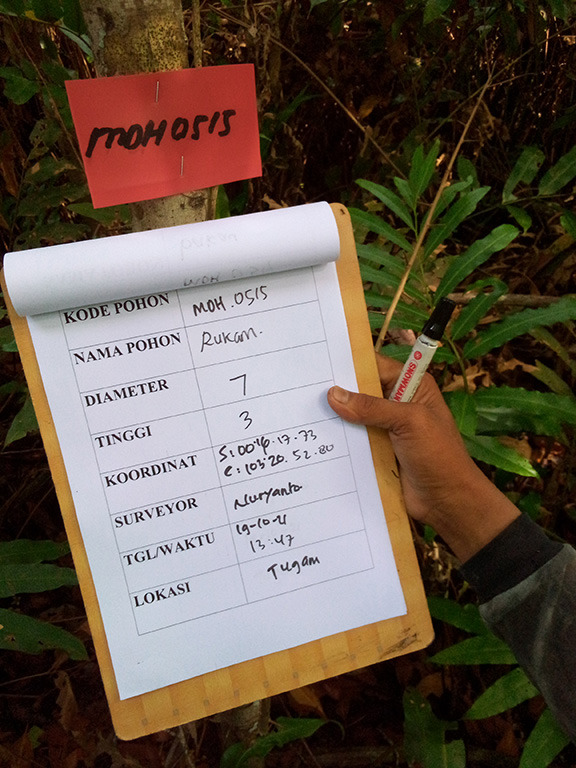 MDH 0515
KODE POHON MDH.0515
NAMA POHON Rukam.
DIAMETER 7
TINGGI 3
KOORDINAT
E: 103.20.52.80
SURVEYOR Nuryanto
TGL/WAKTU
13:47
LOKASI Tugam
SNOWMAN